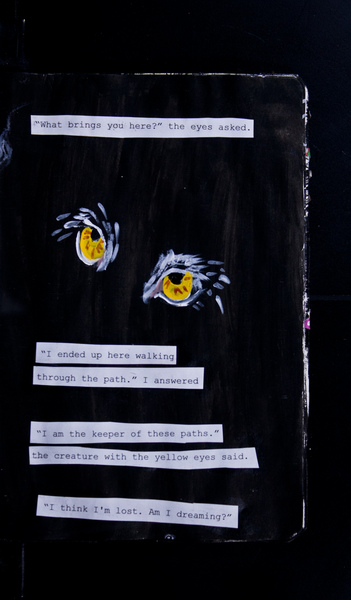 “What brings you here?” the eyes asked.
“I ended up here walking
through the path.” I answered
“I am the keeper of these paths.”
the creature with the yellow eyes said.
“I think I'm lost. Am I dreaming?”